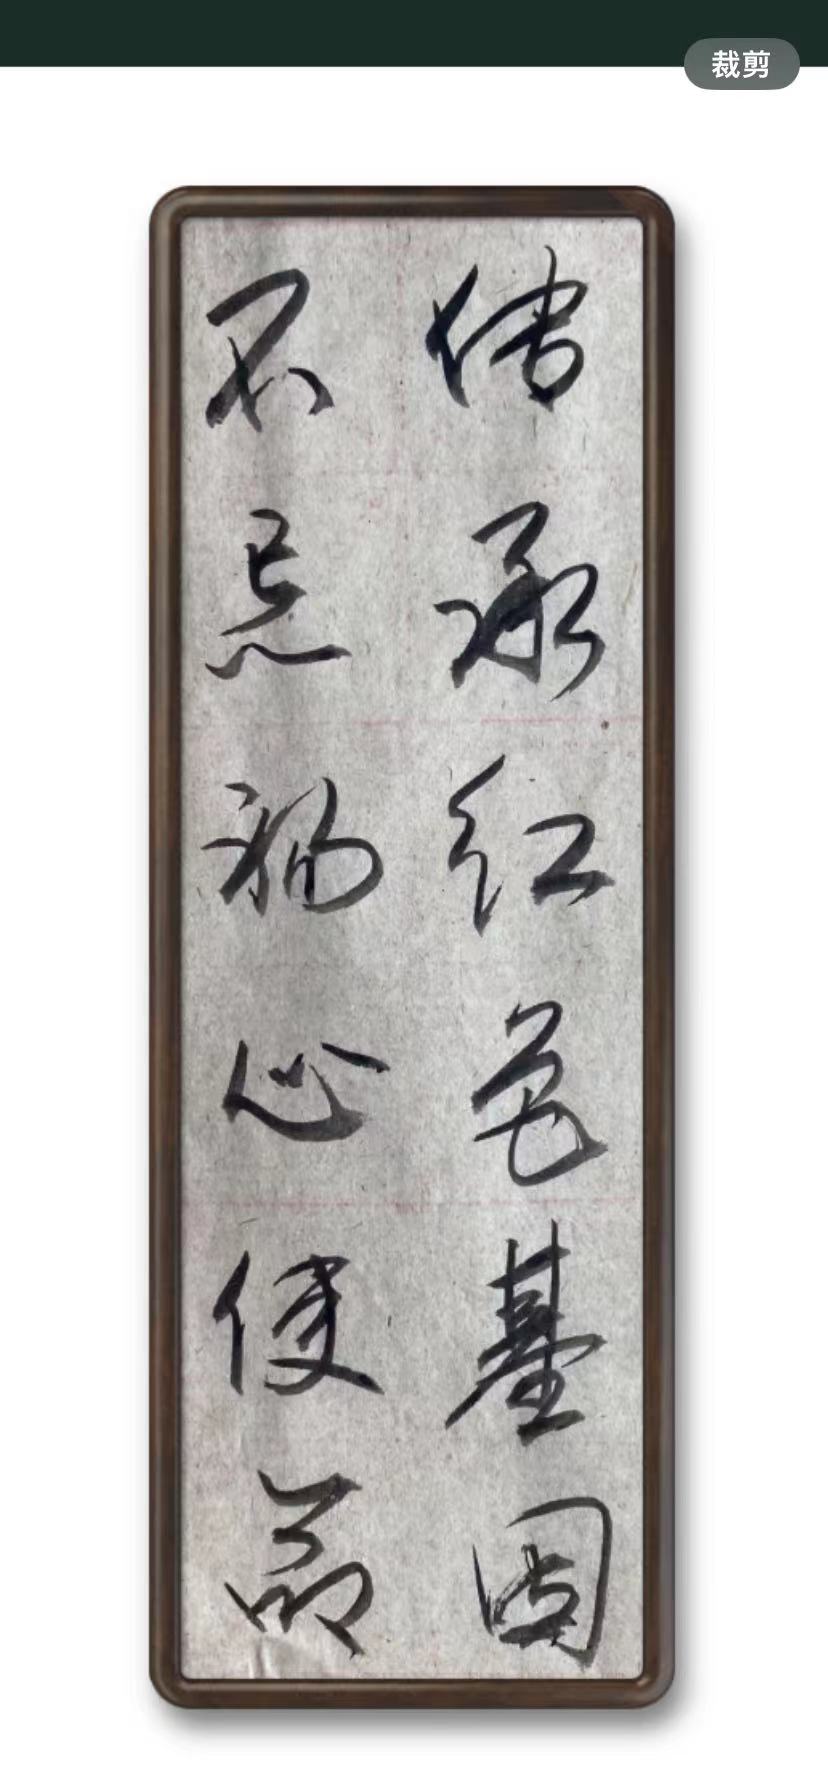 传承红色基因
不忘初心使命
裁剪